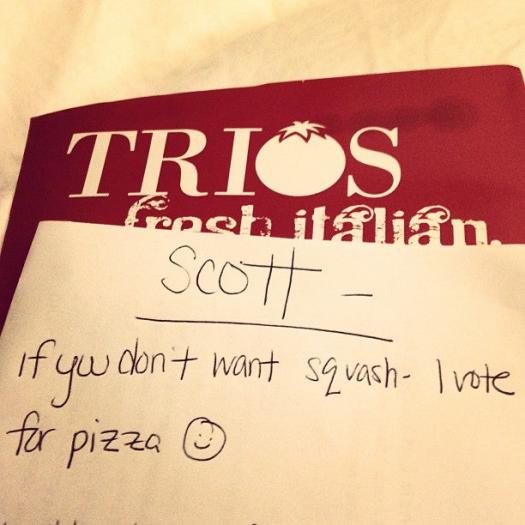 TRIOS
fresh italian.
Scott -
if you don't want squash- I vote
for pizza